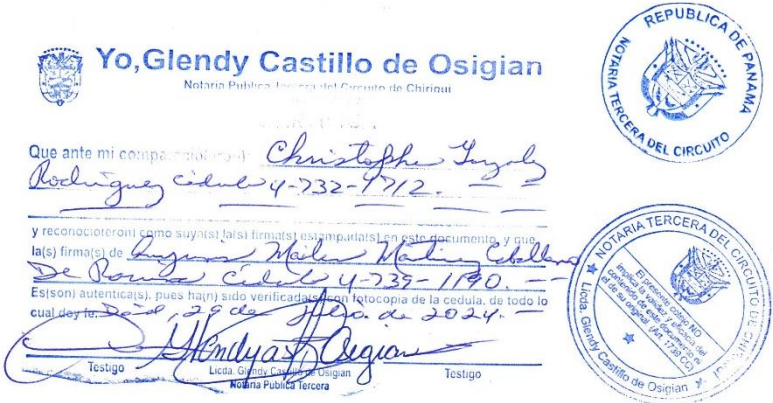 Yo, Glendy Castillo de Osigian
Notaria Publica Tercera del Circuito de Chiriqui
Que ante mi Christopher
Rodriguez cédula 4-732-1712.
y reconocio(eron) como suya(s) la(s) firma(s) estampada(s) en este documento, y que
la(s) firma(s) de Mailen Martinez Caballero
De cédula 4-739-1190.
Es(son) autentica(s), pues ha(n) sido verificada(s) con fotocopia de la cedula, de todo lo
cual doy fe. David, 29 de de 2024.
Glendy Osigian
Testigo
Licda. Glendy Castillo de Osigian
Notaria Publica Tercera
Testigo
REPUBLICA DE PANAMA
NOTARIA TERCERA DEL CIRCUITO
NOTARIA TERCERA DEL CIRCUITO DE
El presente cotejo NO
implica la validez y eficacia del
contenido de este documento ni
de su original (Art. 1739 CC)
Licda. Glendy Castillo de Osigian